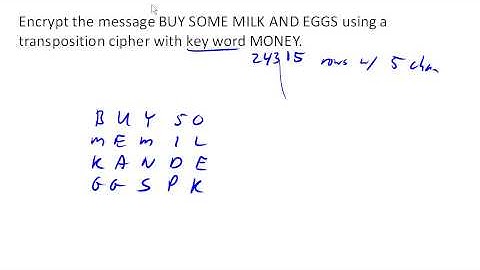 Encrypt the message BUY SOME MILK AND EGGS using a
transposition cipher with key word MONEY.
24315 rows w/ 5 char
B U Y S O
M E M I L
K A N D E
G G S P K